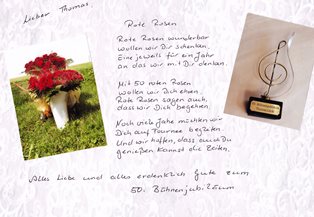 Lieber Thomas.
Rote Rosen
Rote Rosen wunderbar
wollen wir Dir schenken.
Eine jeweils für ein Jahr
an das wir mit Dir denken.
Mit 50 roten Rosen
wollen wir Dich ehren.
Rote Rosen sagen auch,
dass wir Dich begehren.
Noch viele Jahre möchten wir
Dich auf Tournee begleiten.
Und wir hoffen, dass auch Du
genießen kannst die Zeiten.
Alles Liebe und alles erdenklich Gute zum
50. Bühnenjubiläum